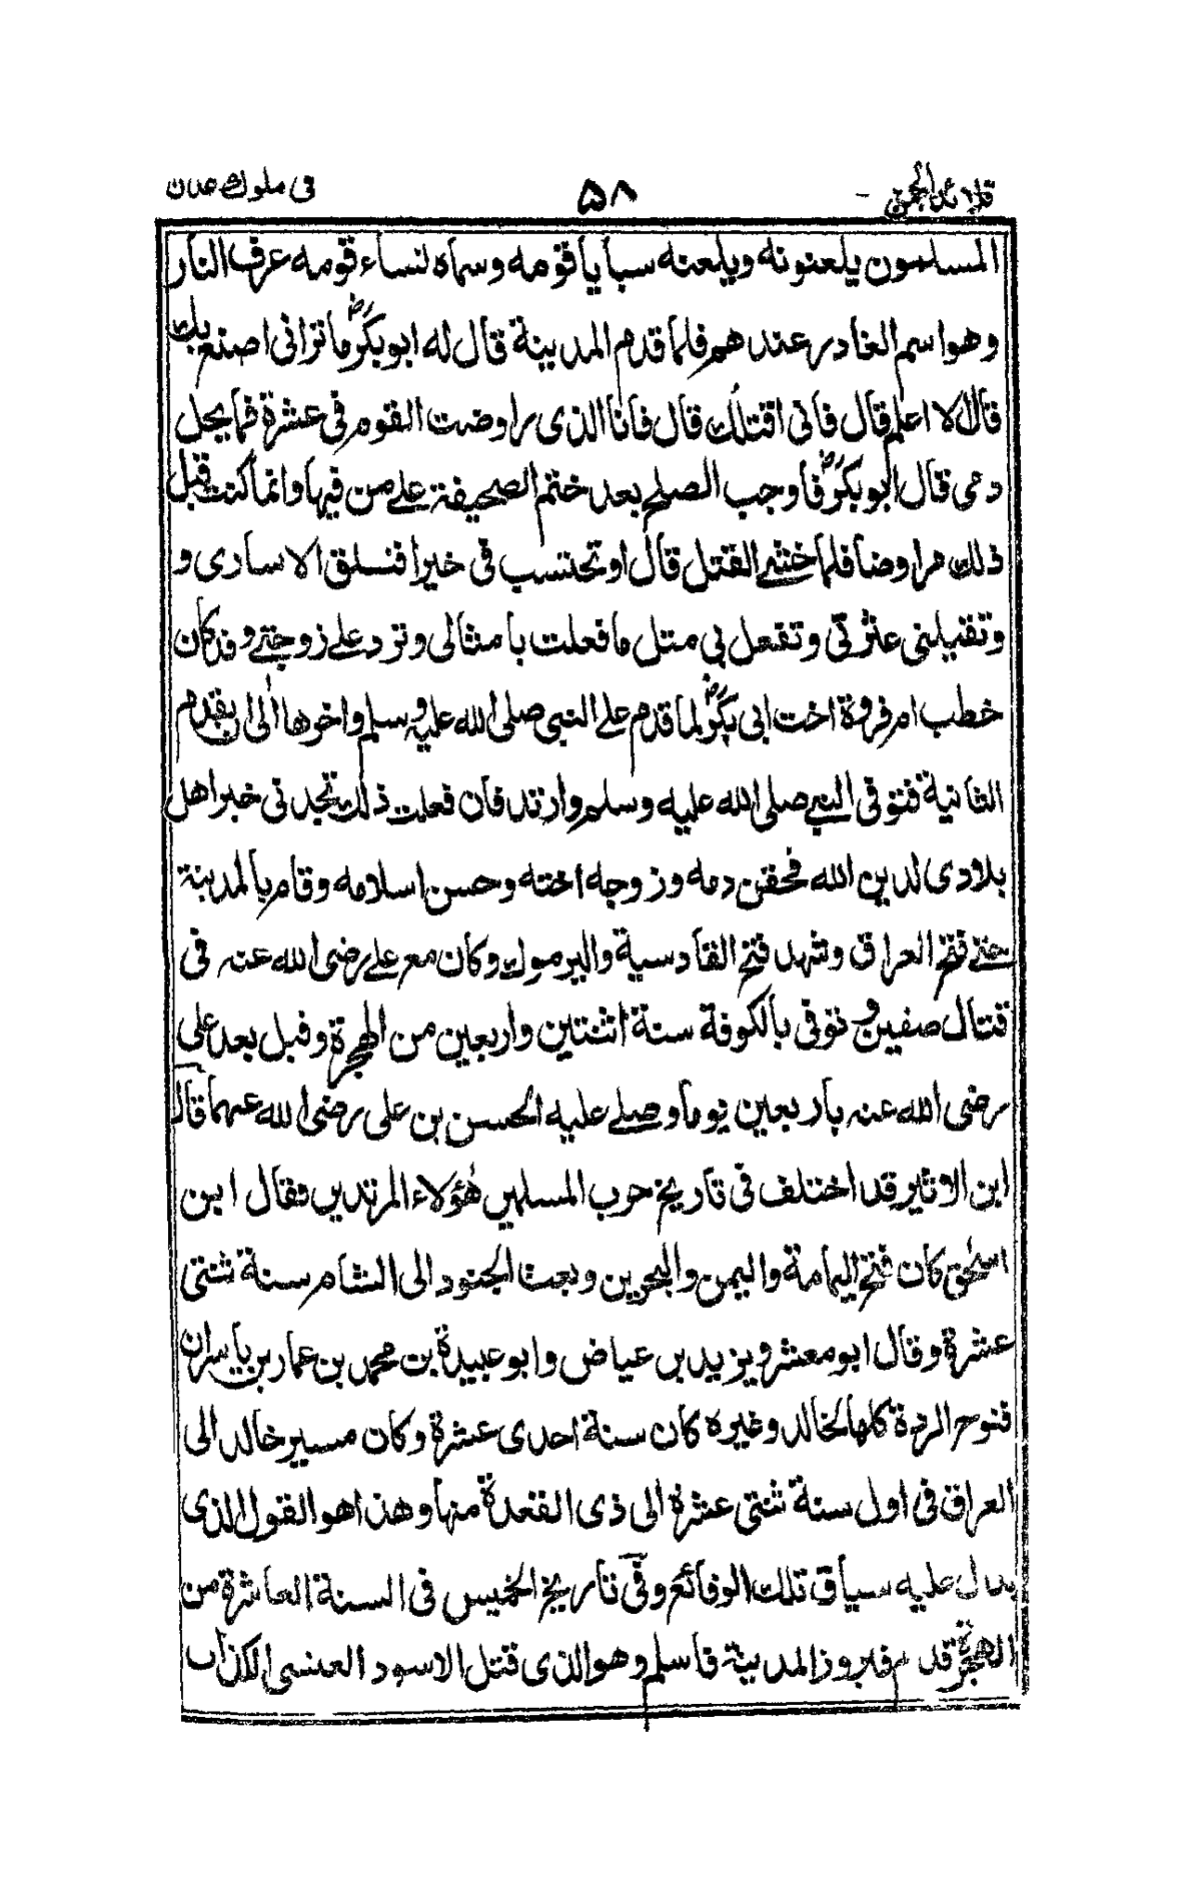 قلائد الجمن - ۵۸ فى ملوك عدن
المسلمون يلعنونه ويلعنه سبايا قومه وسماه نساء قومه عرف النار
وهو اسم الغادر عندهم فلما قدم المدينة قال له ابوبكرؓ ما ترانى اصنع بك
قال لا اعلم قال فانى اقتلك قال فانا الذى راوضت القوم فى عشرة فما يحل
دمى قال ابوبكرؓ فاوجب الصلح بعد ختم الصحيفة على من فيها وانما كنت قبل
ذلك مراوضا فلما خشى القتل قال اوتحتسب فى خيرا فتسلق الاسارى و
وتقيلنى عثرتى وتفعل بى مثل ما فعلت بامثالى وترد على زوجتى وقد كان
خطب ام فروة اخت ابى بكرؓ لما قدم على النبى صلى الله عليه وسلم واخوها الى ان يقدم
الثانية فتوفى النبى صلى الله عليه وسلم وارتد فان فعلت ذلك تجدنى خير اهل
بلادى لدين الله فحقن دمه وزوجه اخته وحسن اسلامه وقام بالمدينة
حتى فتح العراق وشهد فتح القادسية واليرموك وكان مع على رضى الله عنه فى
قتال صفين و توفى بالكوفة سنة اثنتين واربعين من الهجرة وقبل بعد على
رضى الله عنه باربعين يوما وصلى عليه الحسن بن على رضى الله عنهما قال
ابن الاثير قد اختلف فى تاريخ حرب المسلمين هٰؤلاء المرتدين فقال ابن
اسحٰق كان فتح اليمامة واليمن والبحرين وبعث الجنود الى الشام سنة ثنتى
عشرة وقال ابو معشر ويزيد بن عياض وابو عبيدة بن محمد بن عمار بن ياسر ان
فتوح الردة كلها لخالد وغيره كان سنة احدى عشرة وكان مسير خالد الى
العراق فى اول سنة ثنتى عشرة الى ذى القعدة منها وهذا هو القول الذى
يدل عليه سياق تلك الوقائع وفى تاريخ الخميس فى السنة العاشرة من
الهجرة قدم فيروز المدينة فاسلم وهو الذى قتل الاسود العنسى الكذاب